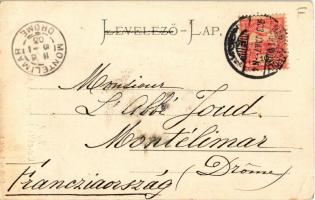 LEVELEZŐ-LAP.
MONTELIMAR
DROME
Monsieur
L'Abbé Joud
Montélimar
(Drôme)
Francziaország